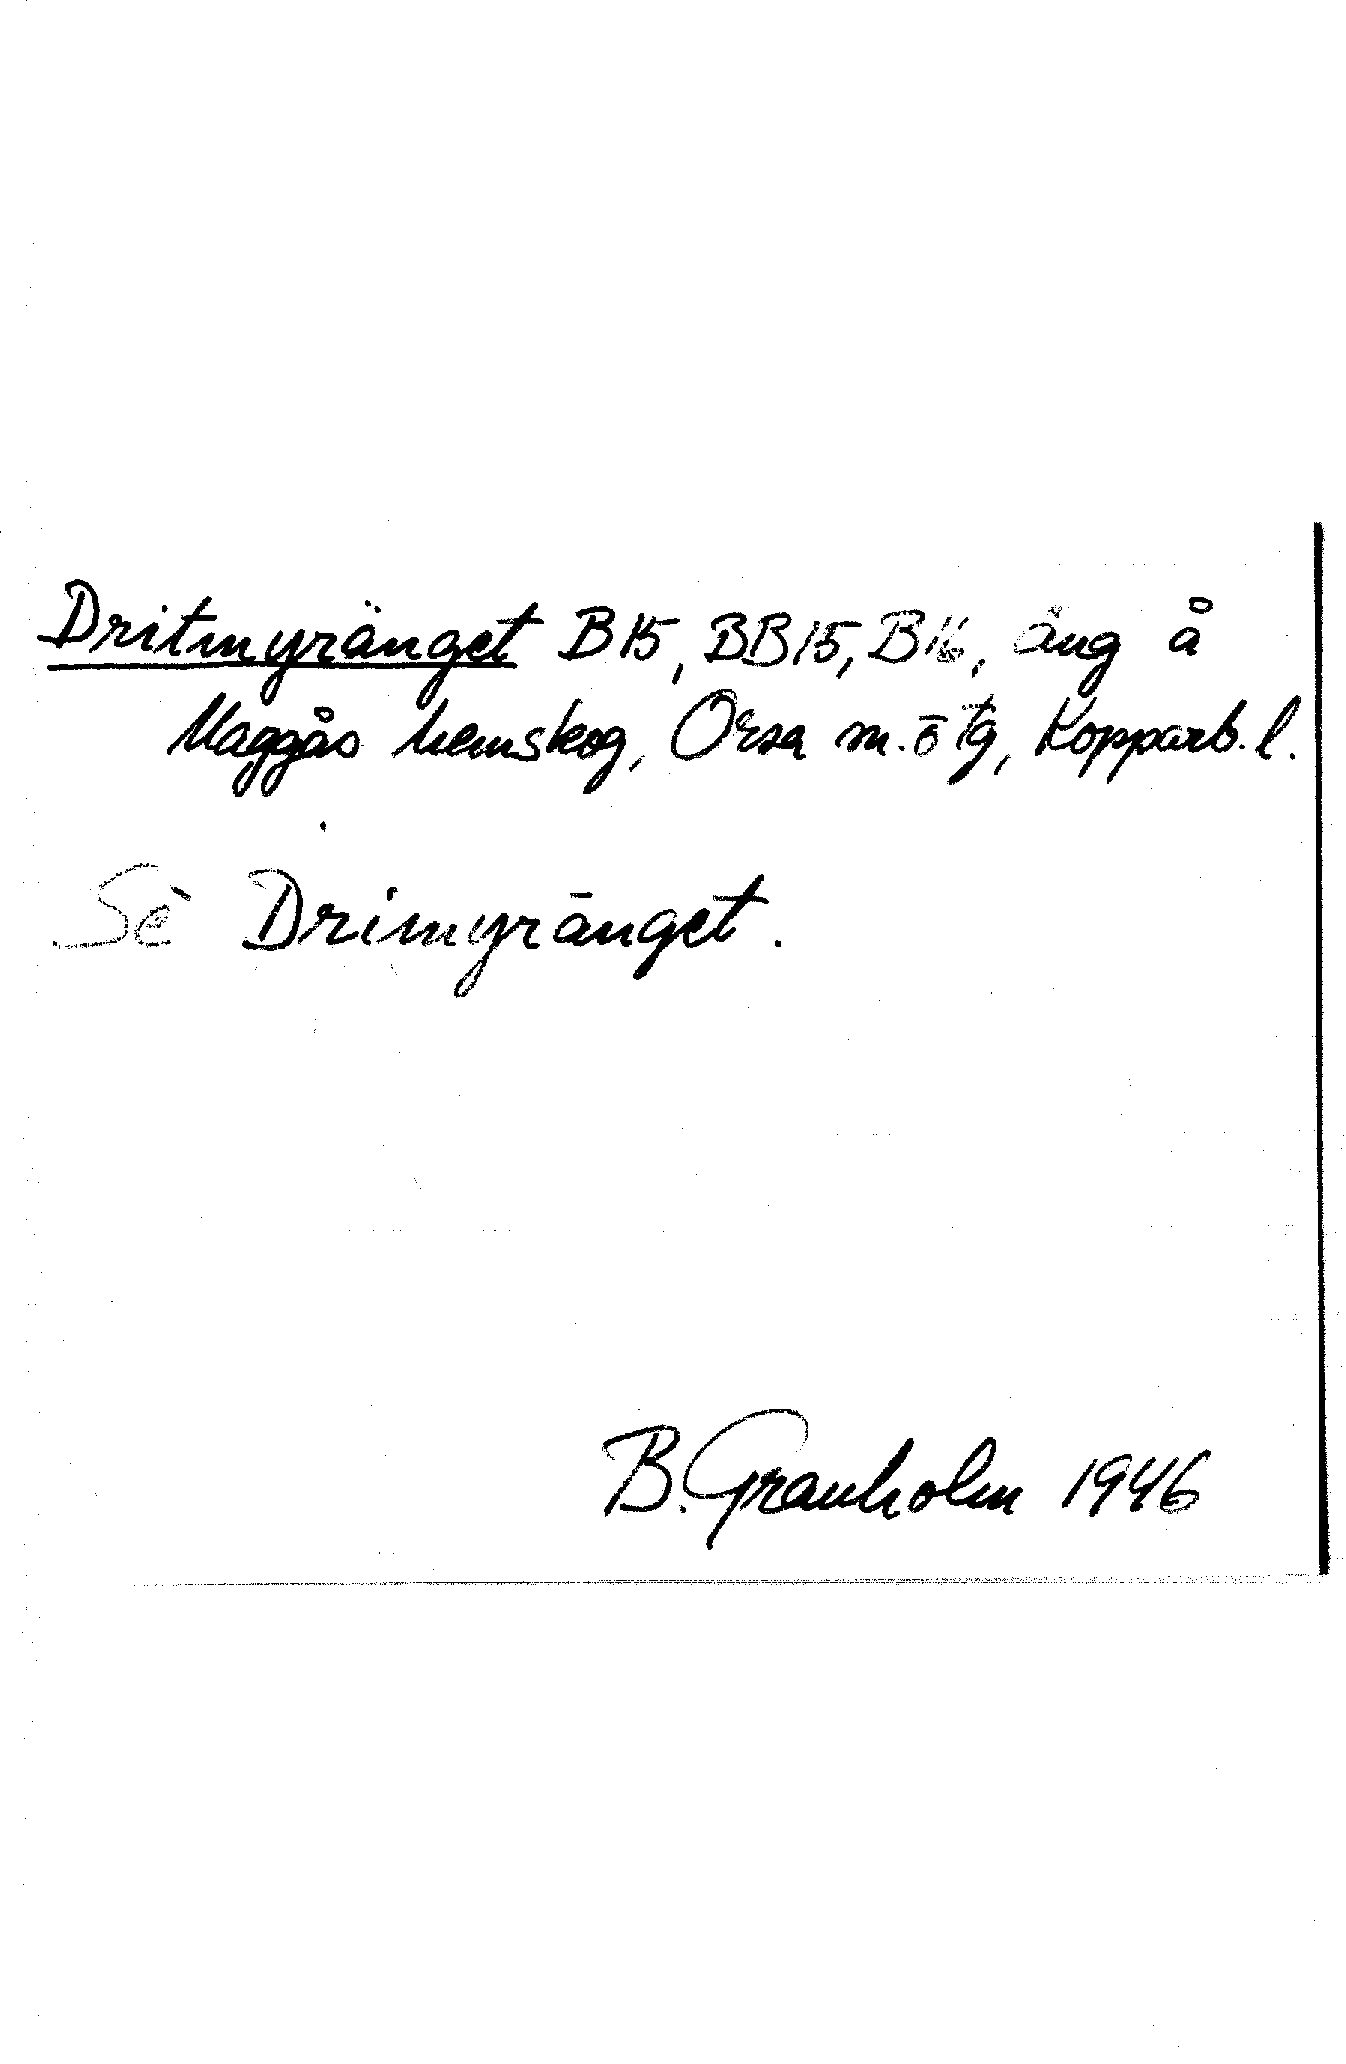 Dritmyränget B15, BB15, B16, äng å
Maggås hemskog, Orsa m. ö tg, Kopparb. l.
Se Drimyränget.
B. Granholm 1946